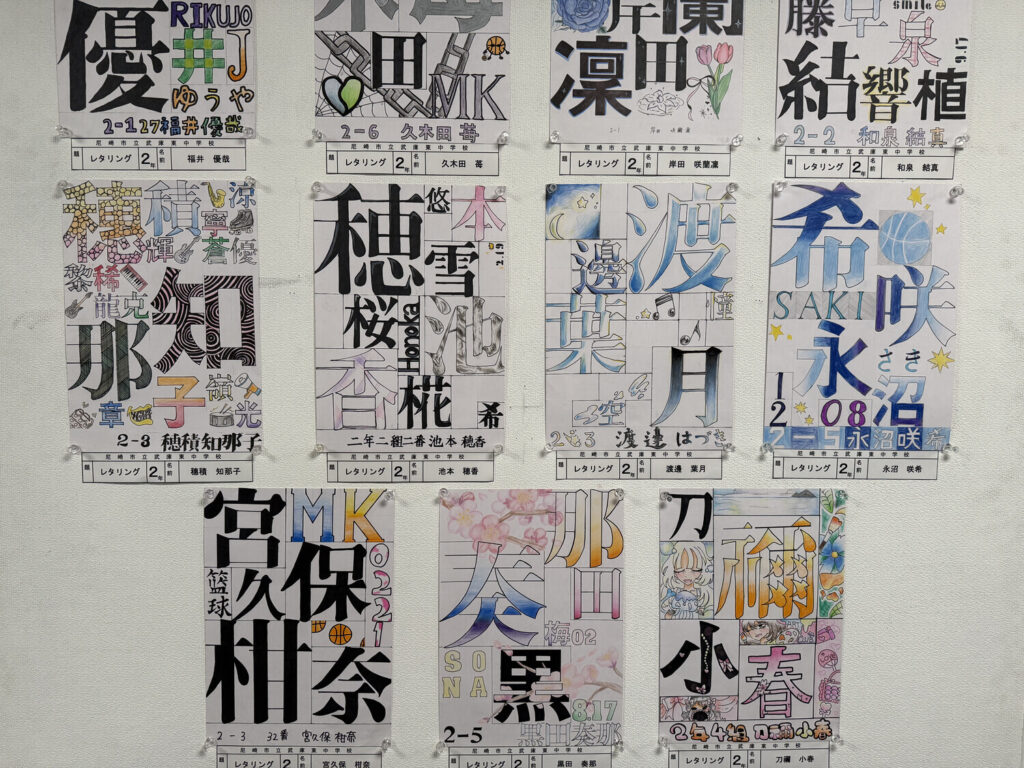 優
RIKUJO
井
J
ゆうや
2-127福井優哉
尼崎市立武庫東中学校
題 レタリング 2年 名前 福井 優哉
田
MK
2-6 久木田 苺
尼崎市立武庫東中学校
題 レタリング 2年 名前 久木田 苺
岸
蘭
凛
田
2-1
尼崎市立武庫東中学校
題 レタリング 2年 名前 岸田 咲蘭凛
藤
草
smile
泉
9.17
結
響
植
2-2 和泉 結真
尼崎市立武庫東中学校
題 レタリング 2年 名前 和泉 結真
穂
積
涼
寧
輝
蒼
優
黎
稀
龍
克
知
那
子
嶺
章
光
2-3 穂積知那子
尼崎市立武庫東中学校
題 レタリング 2年 名前 穂積 知那子
穂
悠
本
雪
2.19
桜
Honoka
池
香
椛
希
二年二組二番池本 穂香
尼崎市立武庫東中学校
題 レタリング 2年 名前 池本 穂香
渡
邊
葉
月
空
渡邊 はづき
尼崎市立武庫東中学校
題 レタリング 2年 名前 渡邊 葉月
希
SAKI
咲
永
さき
12
08
沼
2-5永沼咲希
尼崎市立武庫東中学校
題 レタリング 2年 名前 永沼 咲希
宮
MK
籃球
久
保
0221
柑
奈
2-3 32番 宮久保柑奈
尼崎市立武庫東中学校
題 レタリング 2年 名前 宮久保 柑奈
那
奏
田
梅
02
SO
NA
黒
8.17
2-5
黒田奏那
尼崎市立武庫東中学校
題 レタリング 2年 名前 黒田 奏那
刀
禰
小
春
2年4組 刀禰小春
尼崎市立武庫東中学校
題 レタリング 2年 名前 刀禰 小春